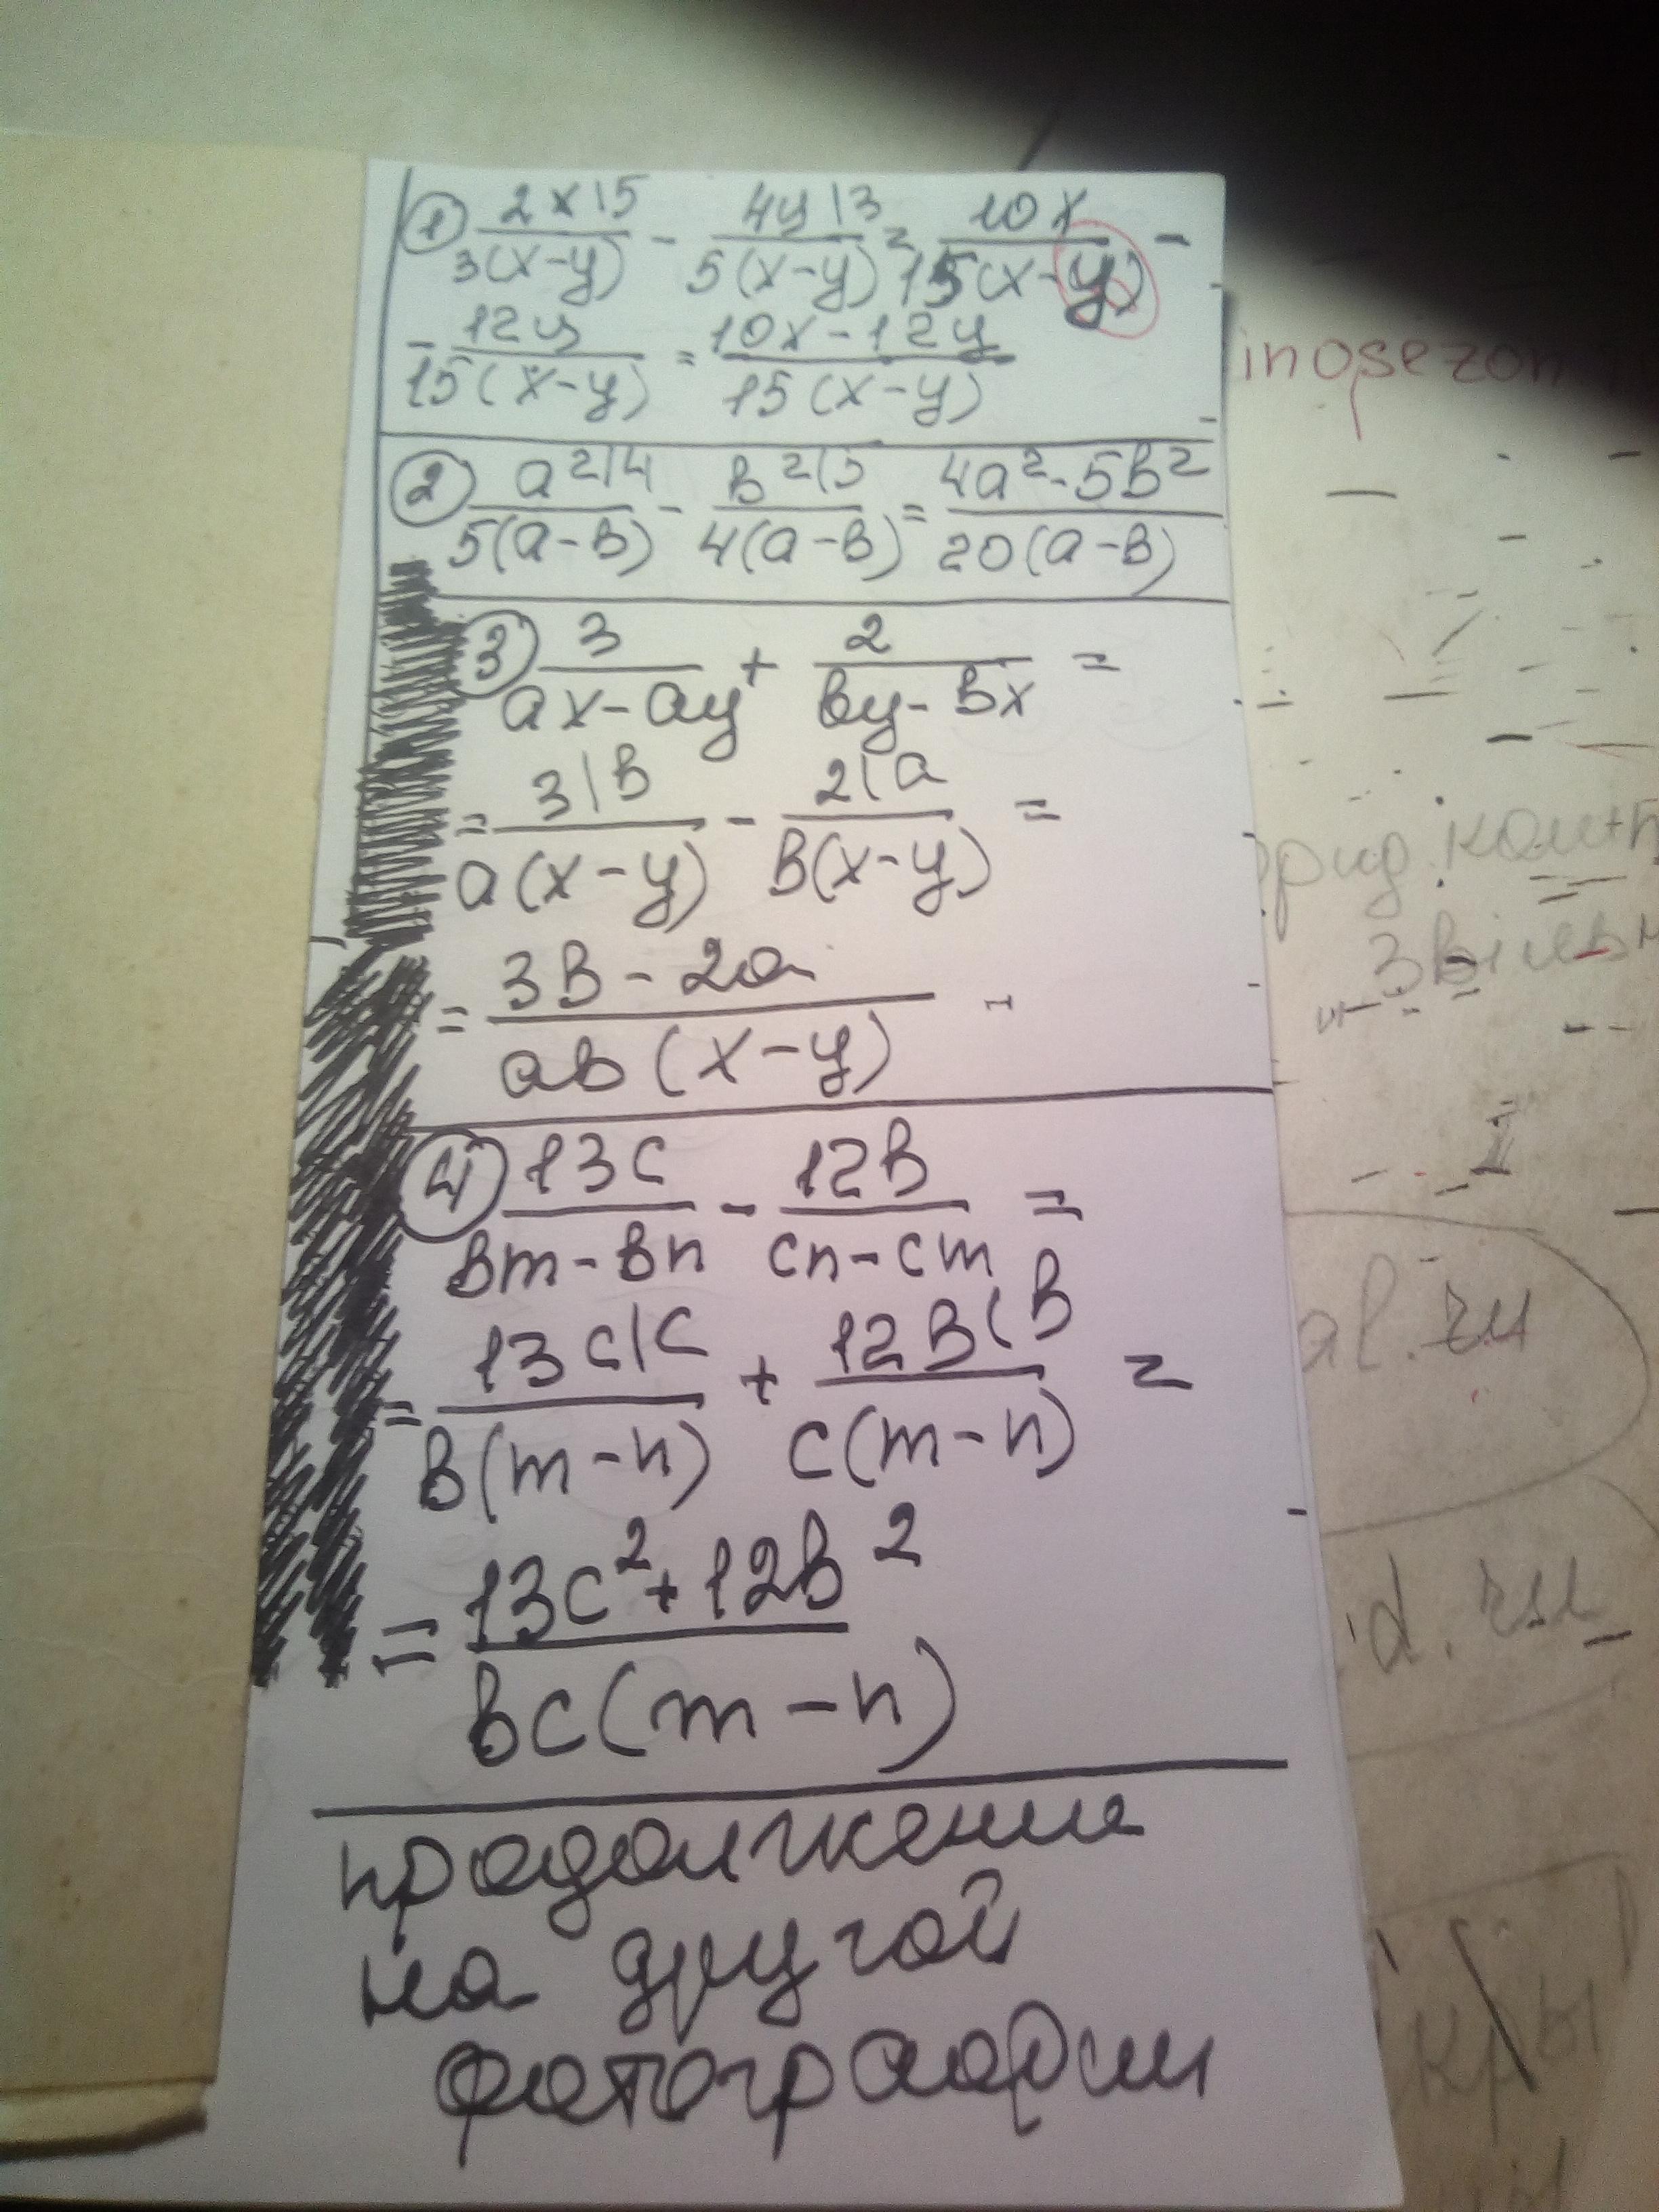 ① 2x|5 / 3(x-y) - 4y|3 / 5(x-y) = 10x / 15(x-y) -
- 12y / 15(x-y) = 10x-12y / 15(x-y)
② a²|4 / 5(a-в) - в²|5 / 4(a-в) = 4a²-5в² / 20(a-в)
③ 3 / ax-ay + 2 / вy-вx =
= 3|в / a(x-y) - 2|a / в(x-y) =
= 3в-2a / aв(x-y) -
④ 13c / вm-вn - 12в / cn-cm =
= 13c|c / в(m-n) + 12в|в / c(m-n) =
= 13c²+12в² / вc(m-n)
продолжение
на другой
фотографии
inosezon
al.ru
d.ru